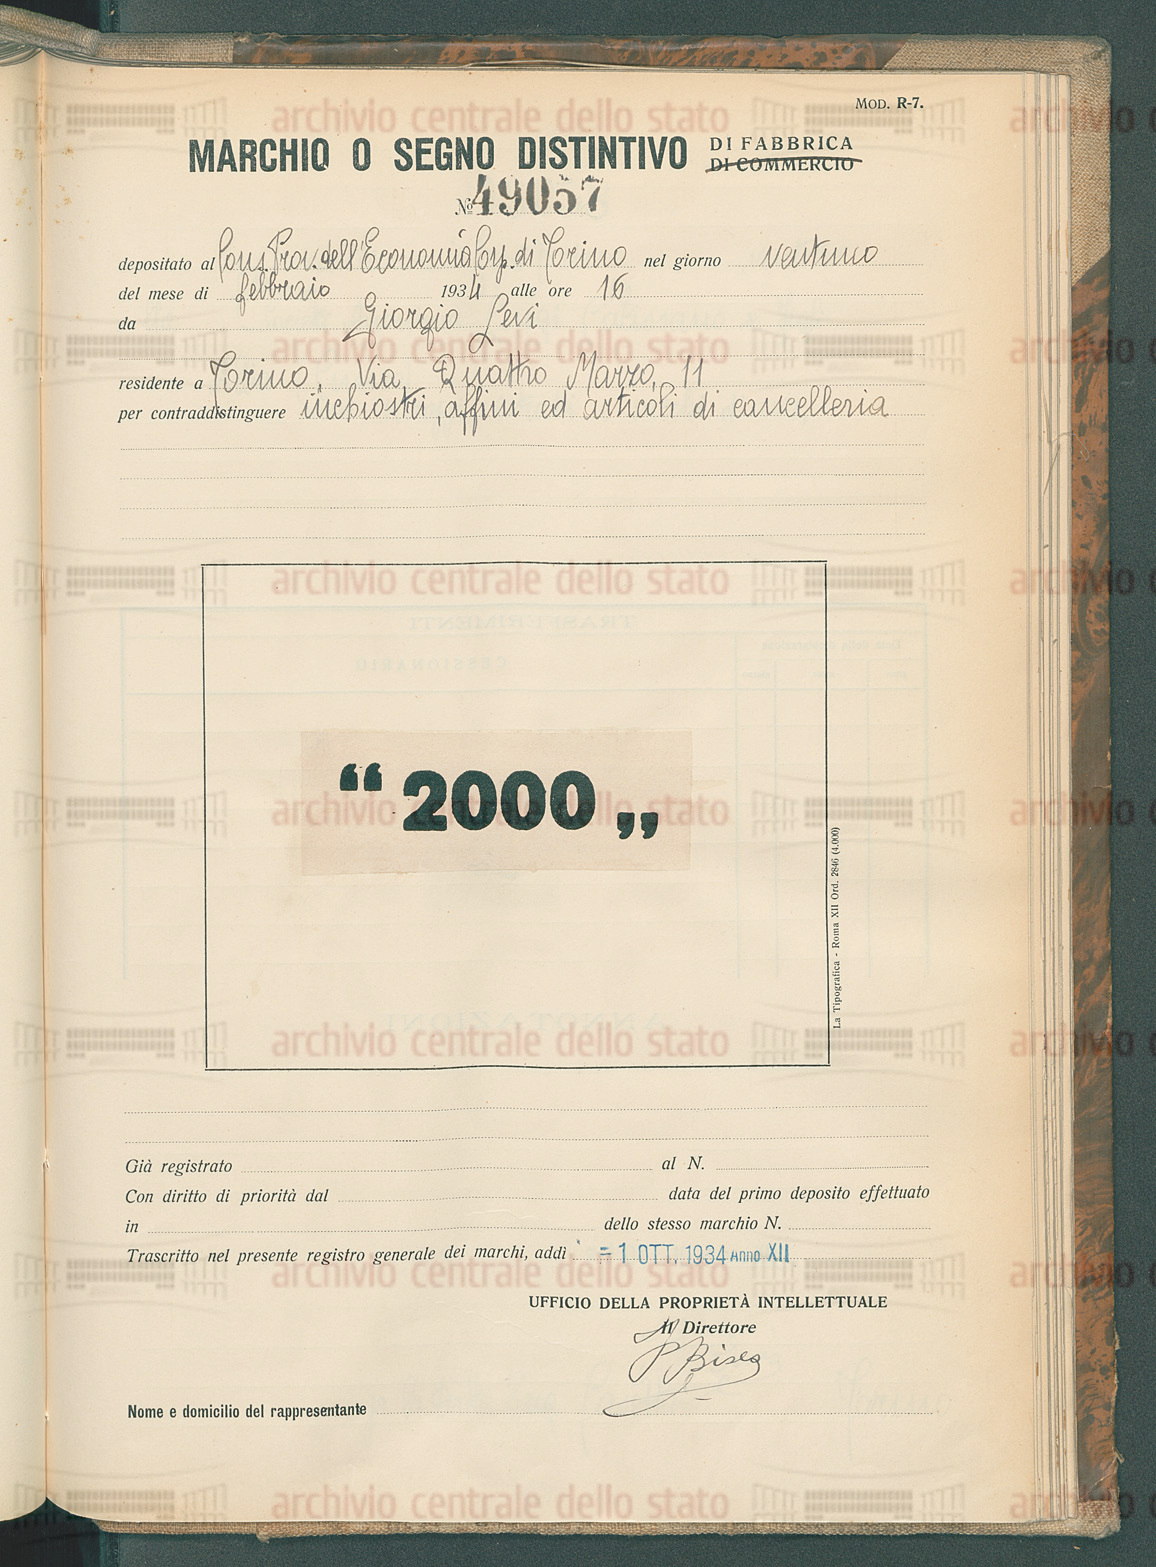 MOD. R-7.
MARCHIO O SEGNO DISTINTIVO DI FABBRICA
DI COMMERCIO
№ 49057
depositato al Cons. Prov. dell'Economia Crp. di Torino nel giorno ventuno
del mese di febbraio 1934 alle ore 16
da Giorgio Levi
residente a Torino, Via Quattro Marzo, 11
per contraddistinguere inchiostri, affini ed articoli di cancelleria
“ 2000 „
La Tipografica - Roma XII Ord. 2846 (4.000)
Già registrato al N.
Con diritto di priorità dal data del primo deposito effettuato
in dello stesso marchio N.
Trascritto nel presente registro generale dei marchi, addì = 1 OTT. 1934 Anno XII
UFFICIO DELLA PROPRIETÀ INTELLETTUALE
Il Direttore
Nome e domicilio del rappresentante
archivio centrale dello stato